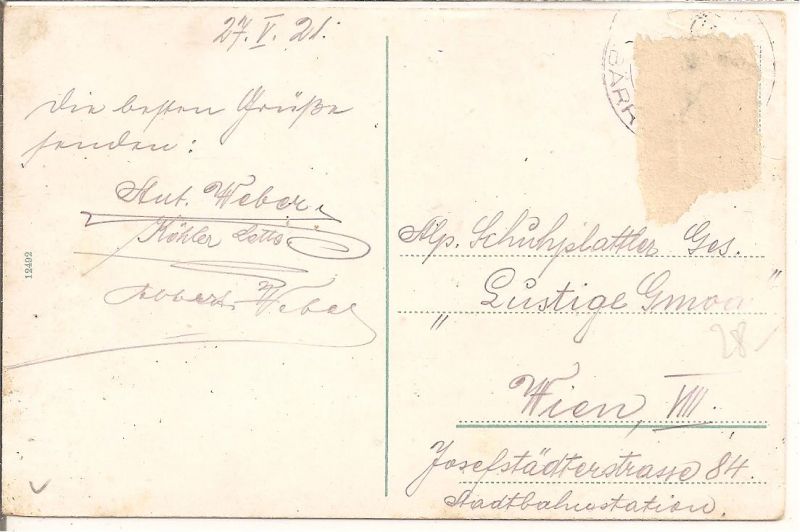 27. V. 21.
Die besten Grüße
senden:
Ant. Weber.
Köhler Otto
Robert Weber
12492
BARR
Alp. Schuhplattler Ges.
„Lustige Gmoa"
28
Wien, VIII.
Josefstädterstrasse 84.
Stadtbahnstation.